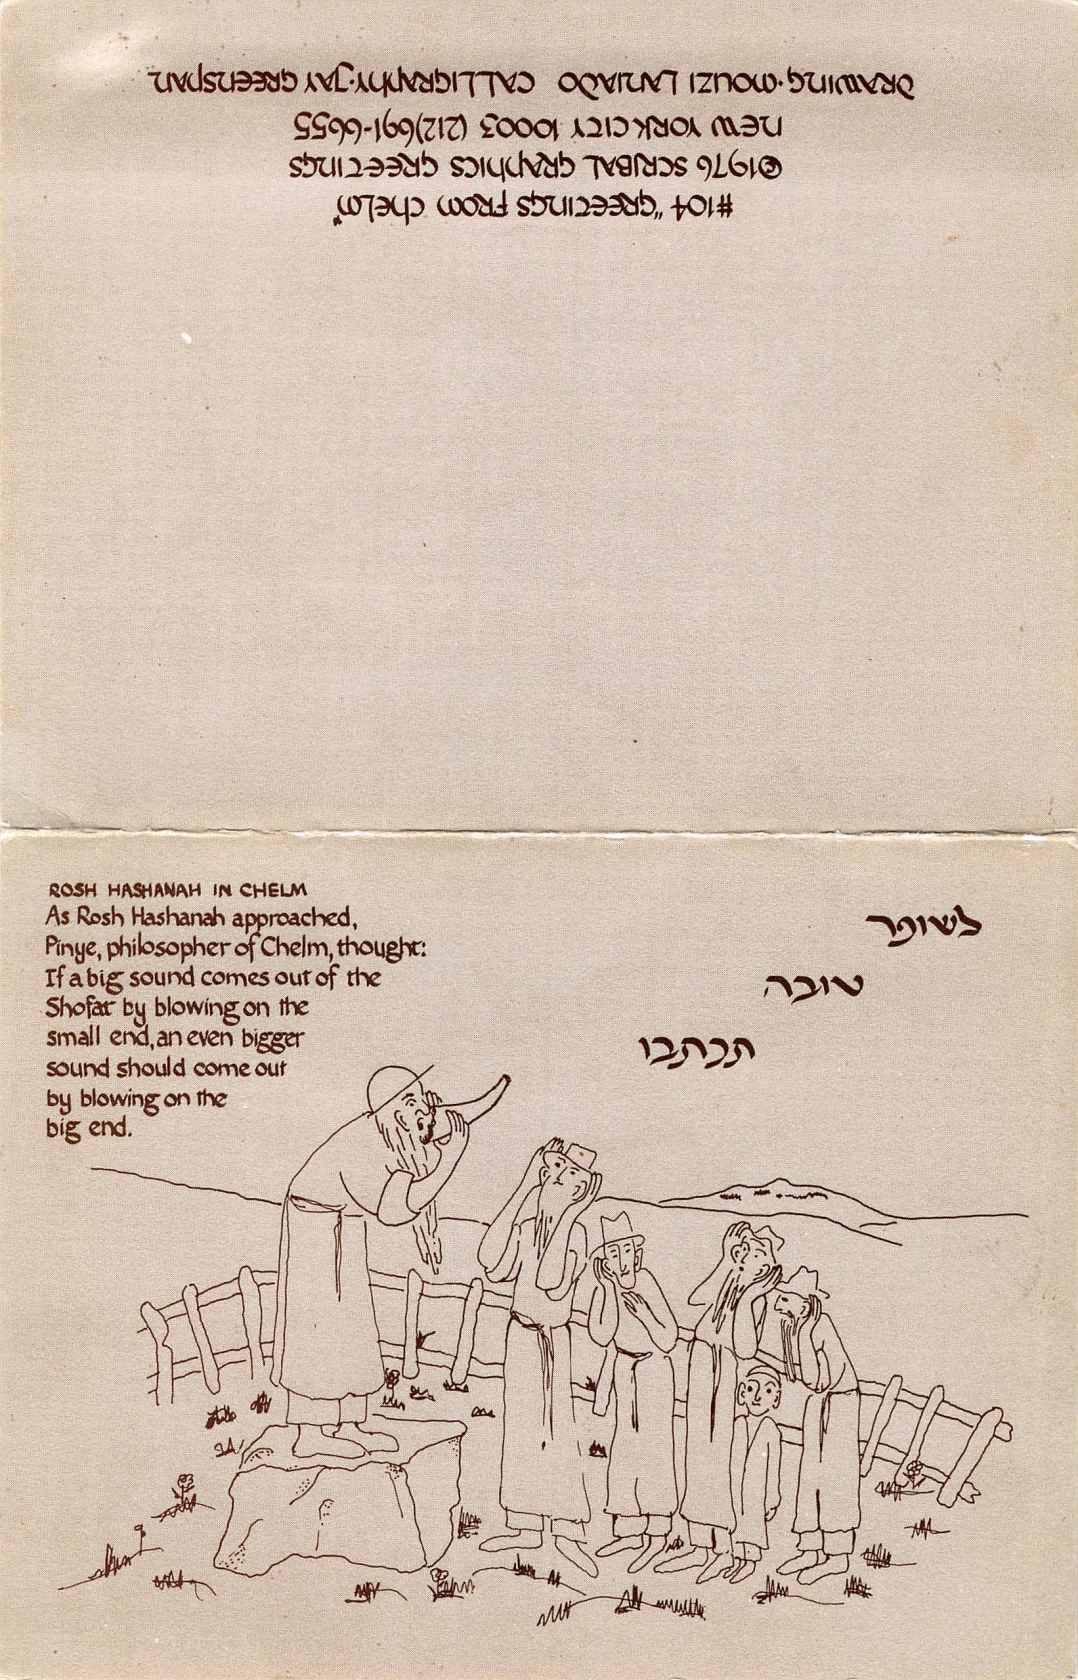 #104 "GREETINGS FROM CHELM"
©1976 SCRIBAL GRAPHICS GREETINGS
NEW YORK CITY 10003 (212)691-6655
DRAWING·MOUZI LANIADO CALLIGRAPHY·JAY GREENSPAN
ROSH HASHANAH IN CHELM
As Rosh Hashanah approached,
Pinye, philosopher of Chelm, thought:
If a big sound comes out of the
Shofar by blowing on the
small end, an even bigger
sound should come out
by blowing on the
big end.
לשופר
טובה
תכתבו